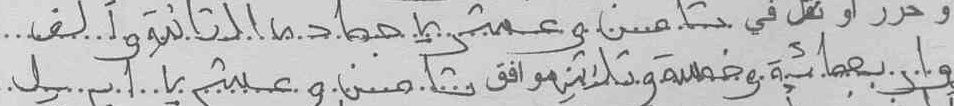 و حرر او نقل في ثامن و عشري جمادى الثانية وألف
وأربعمائة وخمسة وثلاثين موافق ثامن و عشري ابريل